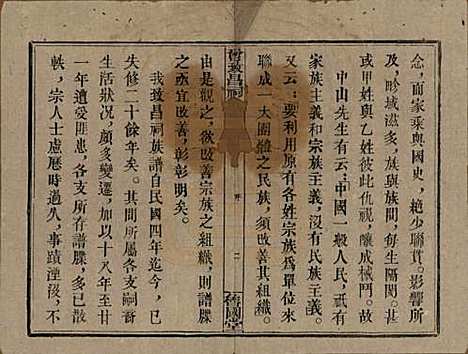 念，而家乘與國史，絶少聯貫。影響所
及，畛域滋多，族與族間，每生隔閡。甚
或甲姓與乙姓彼此仇視，釀成械鬥。故
中山先生有云：中國一般人民，祇有
家族主義和宗族主義，沒有民族主義。
又云：要利用原有各姓宗族爲單位來
聯成一大團體之民族，須改善其組織。
曾致昌祠
序
二
由是觀之，欲改善宗族之組織，則譜牒
之亟宜改善，彰彰明矣。
我致昌祠族譜自民國四年迄今，已
失修二十餘年矣。其間所屬各支嗣裔
生活狀況，頗多變遷，加以十八年至廿
一年遭受匪患，各支所存譜牒，多已散
軼，宗人士慮歷時過久，事蹟湮沒，不